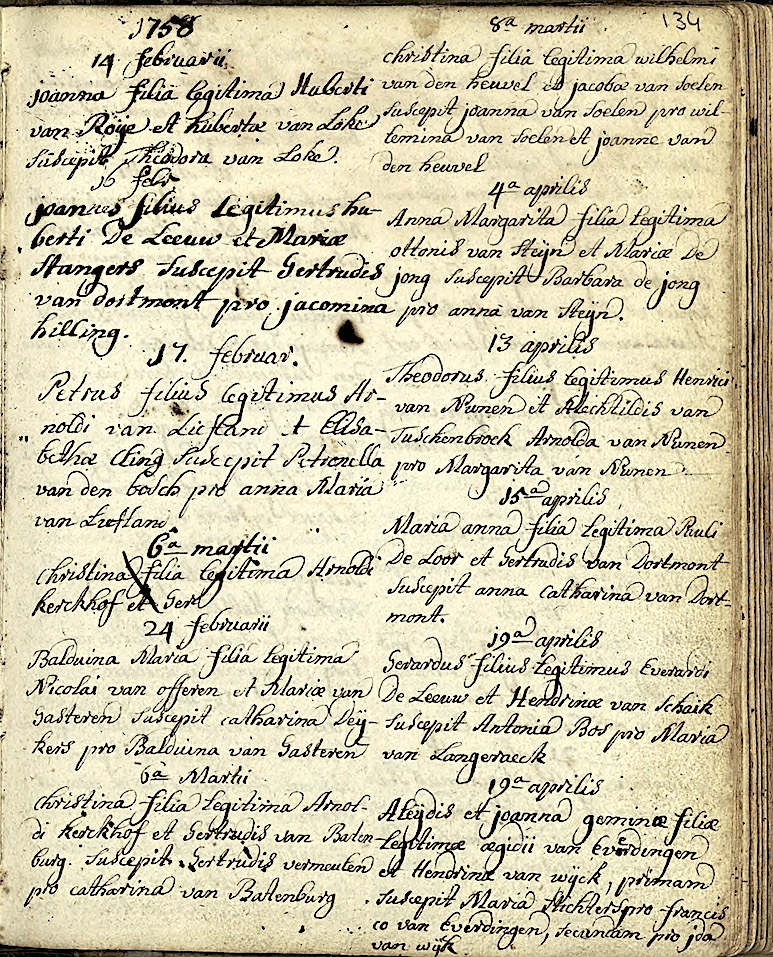 1758
14 februarii
joanna filia legitima Huberti
van Roije et hubertæ van Loke
suscepit Theodora van Loke.
16 febr
joannes filius legitimus hu-
berti De Leeuw et Mariæ
Stangers suscepit Gertrudis
van dortmont pro jacomina
hilling.
17. februar.
Petrus filius legitimus Ar-
noldi van Liefland et Elisa-
bethæ Cling suscepit Petronella
van den bosch pro anna Maria
van Liefland
6a martii
christina filia legitima Arnoldi
kerckhof et Gert
24 februarii
Balduina Maria filia legitima
Nicolai van offeren et Mariæ van
Gasteren suscepit catharina Deij-
kers pro Balduina van Gasteren
6a Martii
christina filia legitima Arnol-
di kerckhof et Gertrudis van Baten-
burg. suscepit Gertrudis vermeulen
pro catharina van Batenburg
134
8a martii
christina filia legitima wilhelmi
van den heuvel et jacobæ van soelen
suscepit joanna van soelen pro wil-
lemina van soelen et joanne van
den heuvel
4a aprilis
Anna Margarita filia legitima
ottonis van steijn et Mariæ De
jong suscepit Barbara de jong
pro anna van steijn.
13 aprilis
Theodorus filius legitimus Henrici
van Nunen et Mechtildis van
Tuschenbroek Arnolda van Nunen
pro Margarita van Nunen
15a aprilis
Maria anna filia legitima Pauli
De Loor et Gertrudis van Dortmont
suscepit anna catharina van Dort-
mont.
19a aprilis
Gerardus filius legitimus Everardi
De Leeuw et Hendrinæ van Schaik
suscepit Antonia Bos pro Maria
van Langeraeck
19a aprilis
Aleijdis et joanna geminæ filiæ
legitimæ ægidii van Everdingen
et Hendrinæ van wijck, primam
suscepit Maria stichters pro francis
co van Everdingen, secundam pro
van wijk